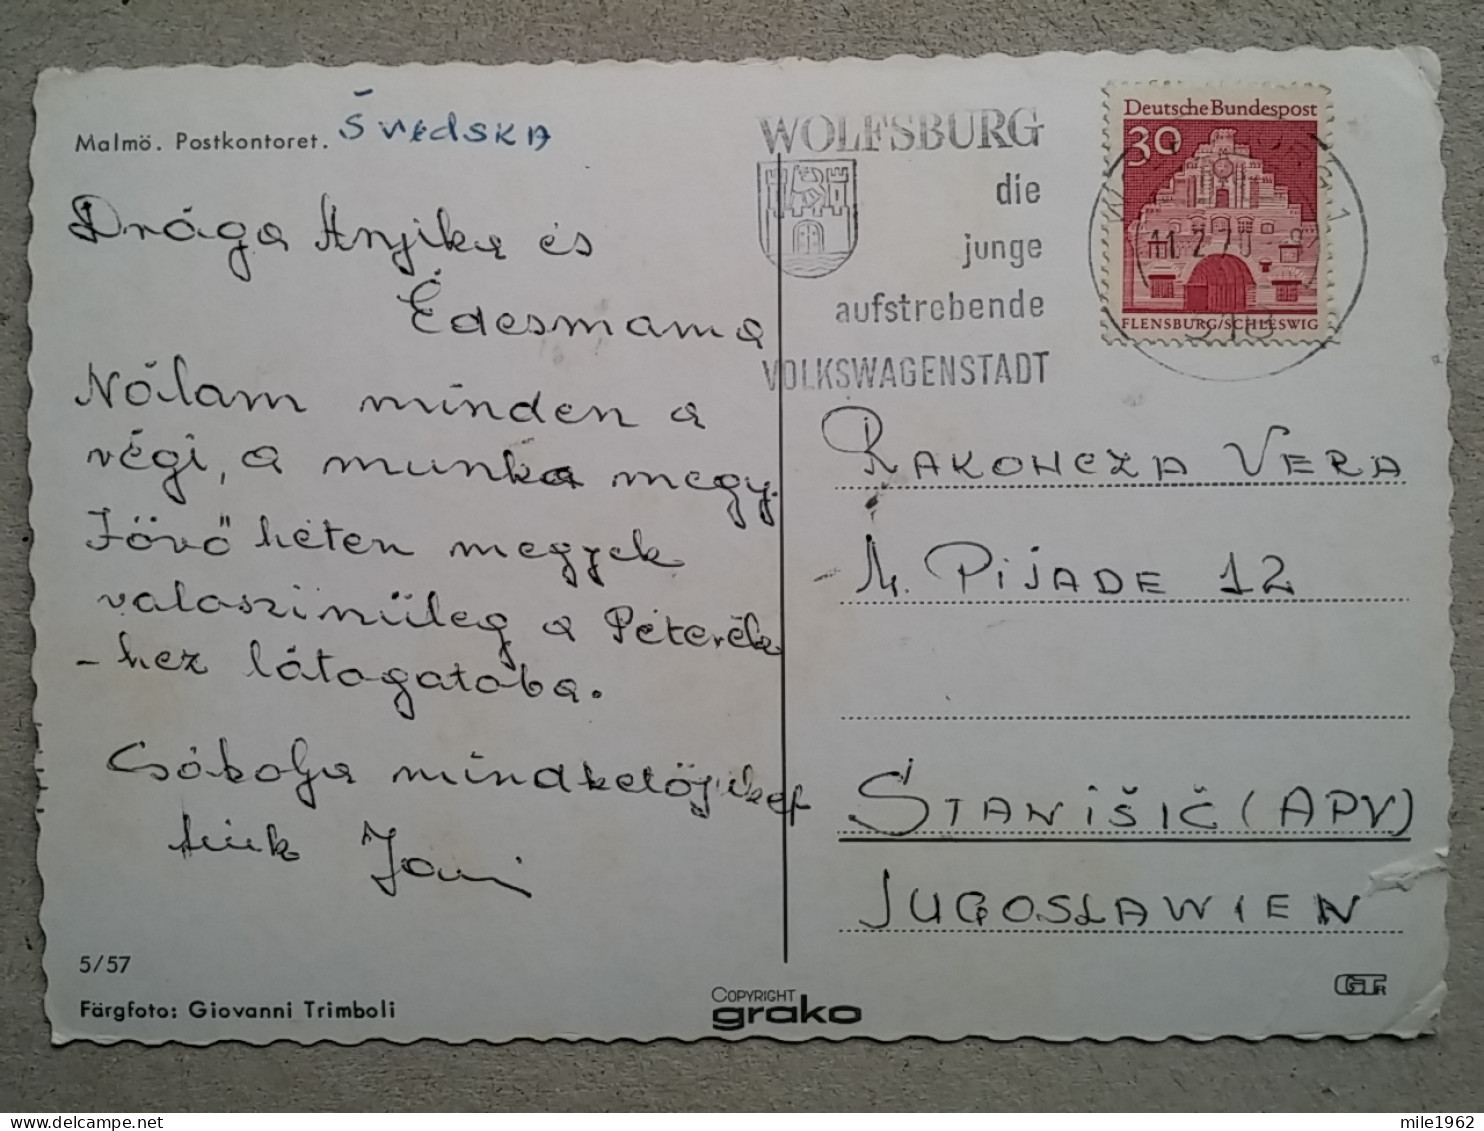 Malmö. Postkontoret. Švedska
Drága Anjika és
Édesmama
Nálam minden a
régi, a munka megy.
Jövő héten megyek
valaszinüleg a Péterék
-hez látogatoba.
Csókolja mindketöjüket
Jani
5/57
Färgfoto: Giovanni Trimboli
COPYRIGHT
grako
WOLFSBURG
die
junge
aufstrebende
VOLKSWAGENSTADT
Deutsche Bundespost
30
11.2.70
FLENSBURG/SCHLESWIG
RAKONCZA VERA
M. PIJADE 12
STANIŠIČ (APV)
JUGOSLAWIEN
GTR
mile1962